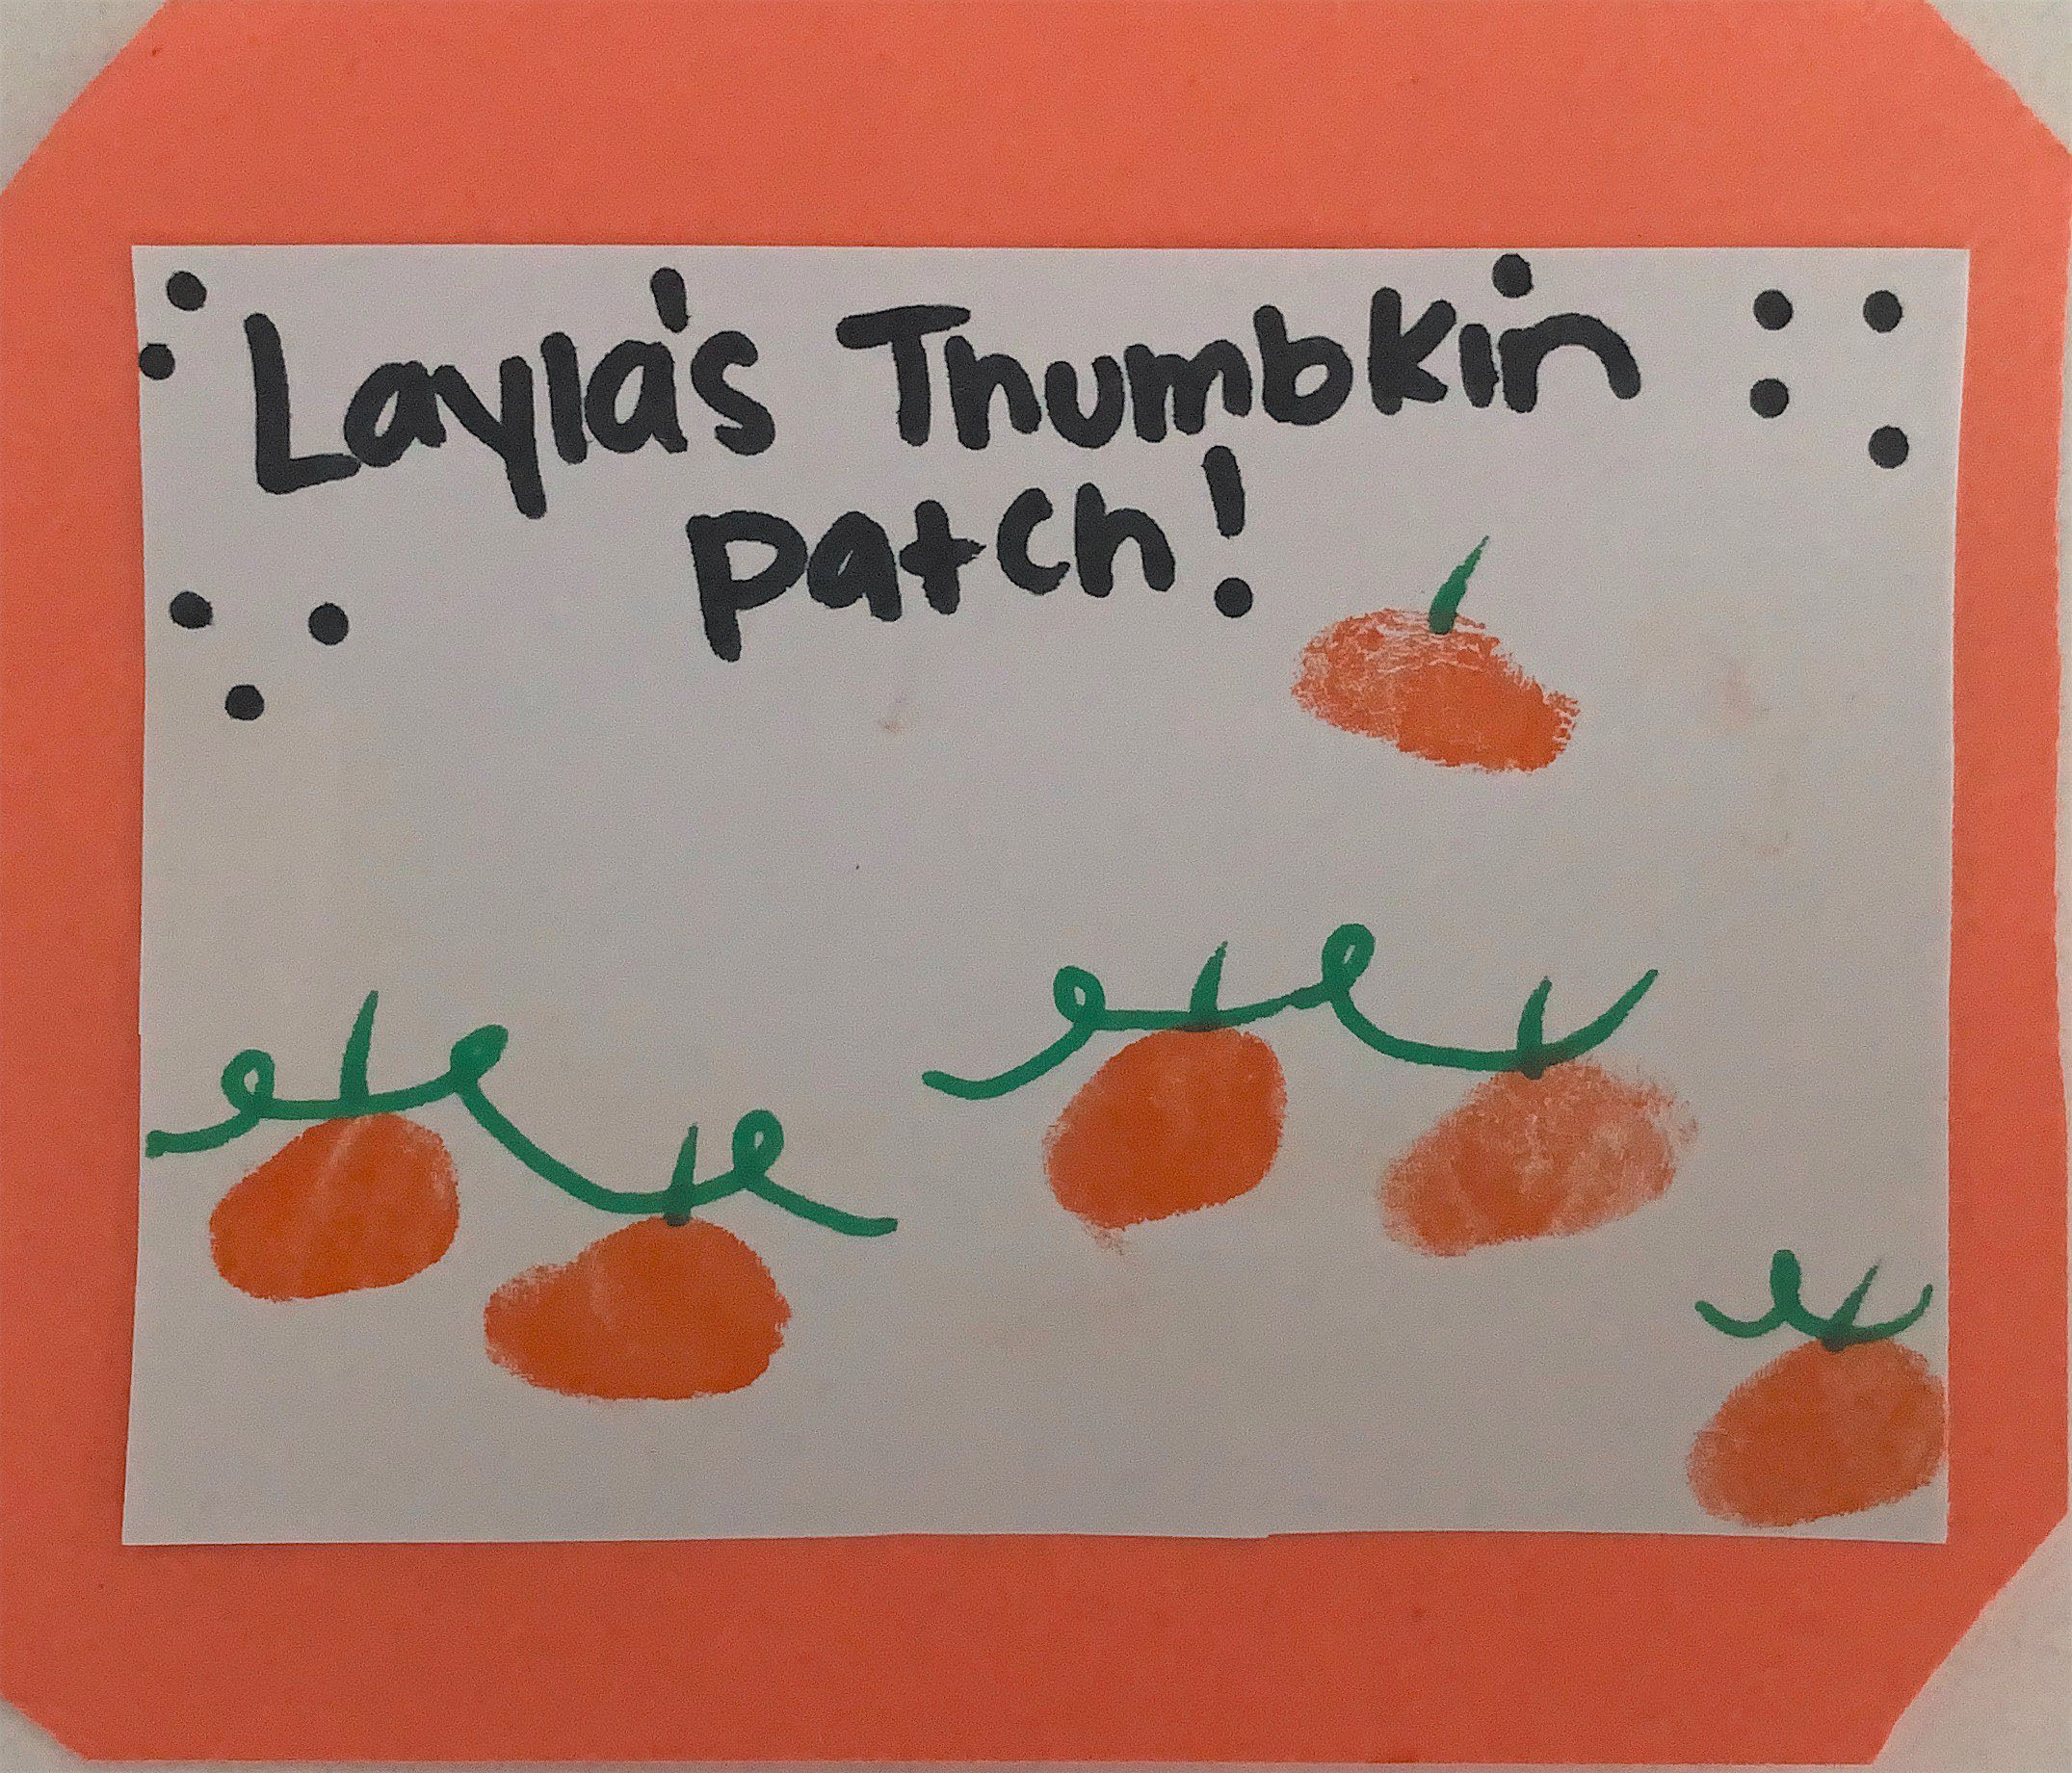 Layla's Thumbkin
patch!